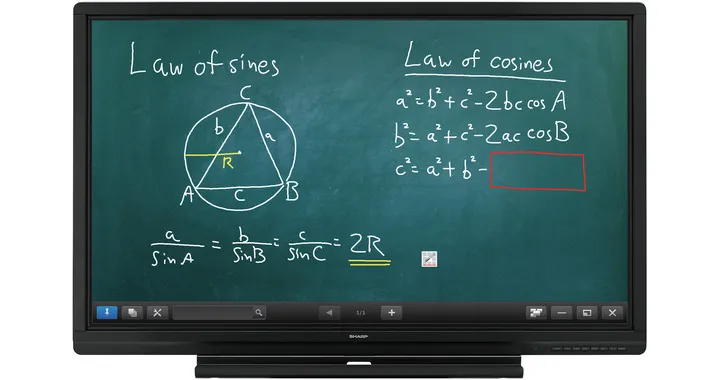 Law of sines
C
b
a
R
A
c
B
a/sinA = b/sinB = c/sinC = 2R
Law of cosines
a²=b²+c²-2bc cosA
b²=a²+c²-2ac cosB
c²=a²+b²-
1/1
SHARP